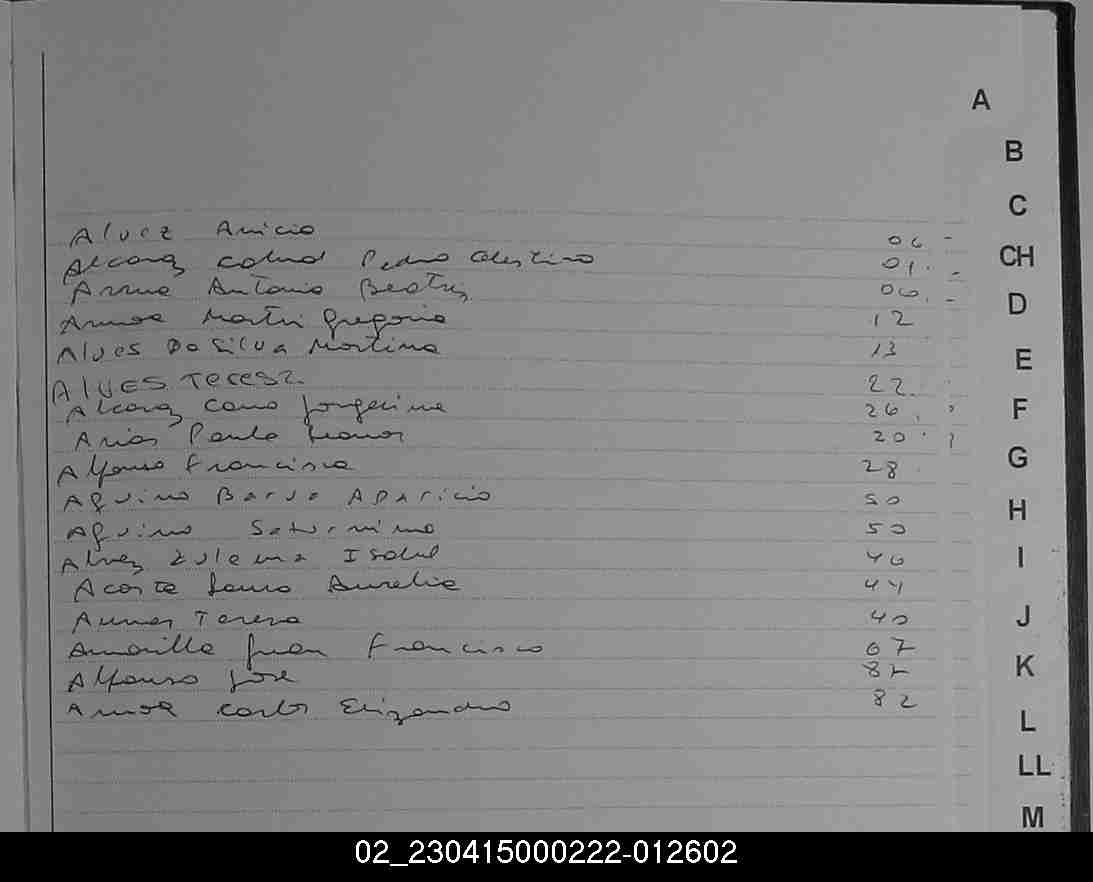 A
B
C
CH
D
E
F
G
H
I
J
K
L
LL
M
Alvez Anicio 06 -
Alcaraz Cabral Pedro Celestino 01. -
Antonia Beatriz 06. -
Martin Gregorio 12
Alves Da Silva Martina 13
ALVES Teresa 22
Alcaraz Cano Jorgelina 26
Arias Paula 20
Alfonso Francisca 28
Aquino Barua Aparicio 50
Aquino Saturnino 50
Alvez Zulema Isabel 46
Acosta Aurelia 44
Teresa 40
Amarilla Juan Francisco 67
Alfonso Jose 82
Carlos Elizandro 82
02_230415000222-012602